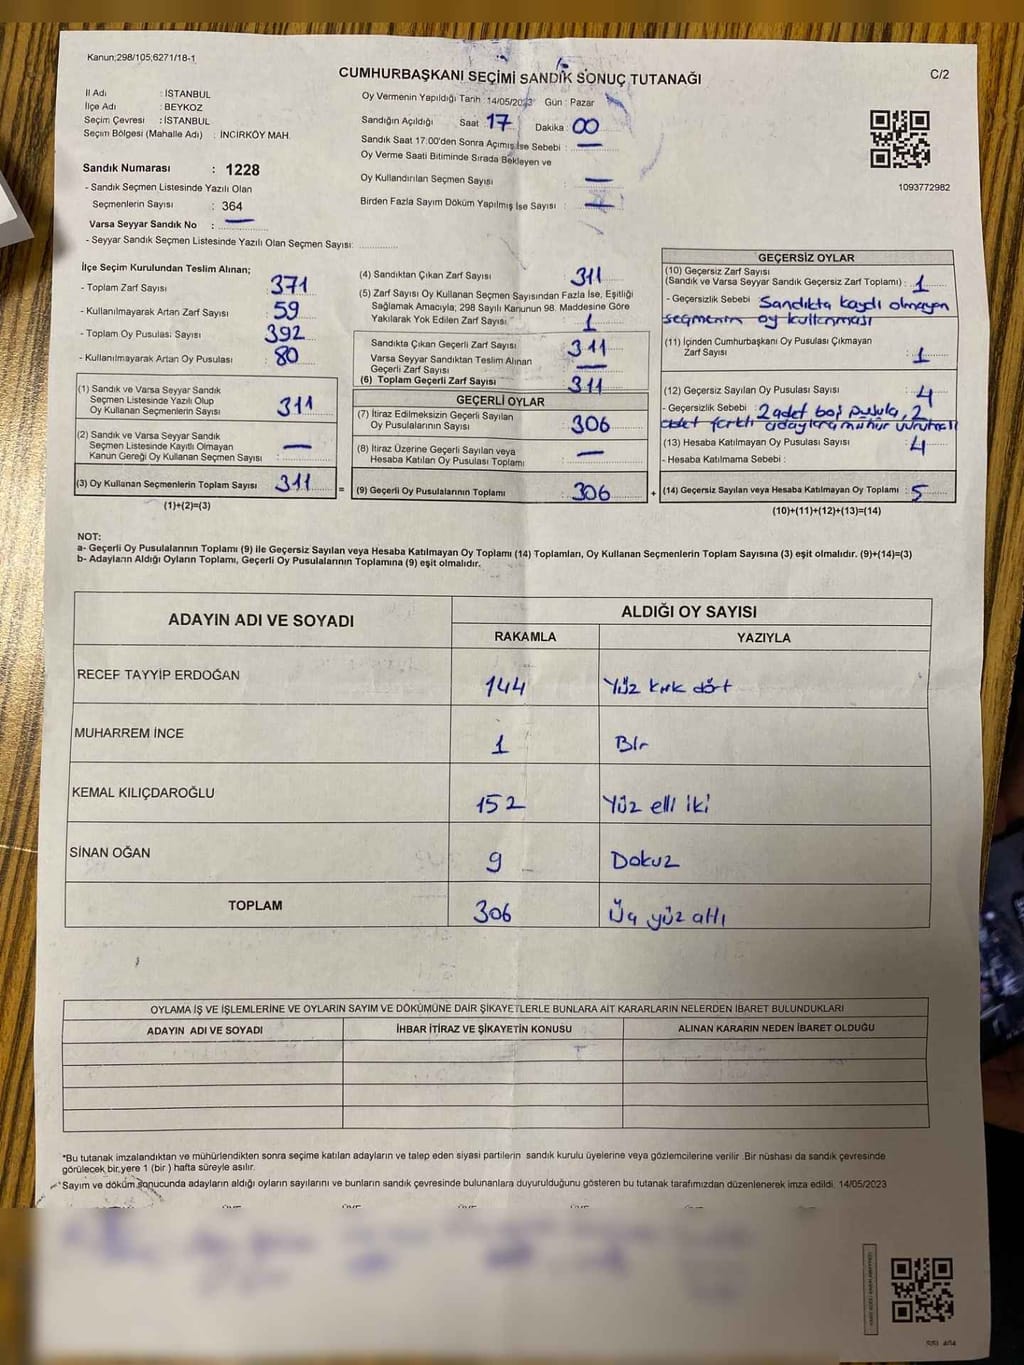 Kanun;298/105;6271/18-1
CUMHURBAŞKANI SEÇİMİ SANDIK SONUÇ TUTANAĞI
C/2
İl Adı : İSTANBUL
İlçe Adı : BEYKOZ
Seçim Çevresi : İSTANBUL
Seçim Bölgesi (Mahalle Adı) : İNCİRKÖY MAH.
Oy Vermenin Yapıldığı Tarih :14/05/2023 Gün : Pazar
Sandığın Açıldığı Saat 17 Dakika : 00
Sandık Saat 17:00'den Sonra Açımış İse Sebebi : —
Oy Verme Saati Bitiminde Sırada Bekleyen ve
Oy Kullandırılan Seçmen Sayısı : —
Birden Fazla Sayım Döküm Yapılmış İse Sayısı : —
1093772982
Sandık Numarası : 1228
- Sandık Seçmen Listesinde Yazılı Olan
Seçmenlerin Sayısı : 364
Varsa Seyyar Sandık No : —
- Seyyar Sandık Seçmen Listesinde Yazılı Olan Seçmen Sayısı:
İlçe Seçim Kurulundan Teslim Alınan;
- Toplam Zarf Sayısı 371
- Kullanılmayarak Artan Zarf Sayısı : 59
- Toplam Oy Pusulası Sayısı 392
- Kullanılmayarak Artan Oy Pusulası : 80
(1) Sandık ve Varsa Seyyar Sandık
Seçmen Listesinde Yazılı Olup
Oy Kullanan Seçmenlerin Sayısı : 311
(2) Sandık ve Varsa Seyyar Sandık
Seçmen Listesinde Kayıtlı Olmayan
Kanun Gereği Oy Kullanan Seçmen Sayısı : —
(3) Oy Kullanan Seçmenlerin Toplam Sayısı : 311
(1)+(2)=(3)
=
(4) Sandıktan Çıkan Zarf Sayısı : 311
(5) Zarf Sayısı Oy Kullanan Seçmen Sayısından Fazla İse, Eşitliği
Sağlamak Amacıyla; 298 Sayılı Kanunun 98. Maddesine Göre
Yakılarak Yok Edilen Zarf Sayısı : 1
Sandıkta Çıkan Geçerli Zarf Sayısı : 311
Varsa Seyyar Sandıktan Teslim Alınan
Geçerli Zarf Sayısı : —
(6) Toplam Geçerli Zarf Sayısı : 311
GEÇERLİ OYLAR
(7) İtiraz Edilmeksizin Geçerli Sayılan
Oy Pusulalarının Sayısı : 306
(8) İtiraz Üzerine Geçerli Sayılan veya
Hesaba Katılan Oy Pusulası Toplamı : —
(9) Geçerli Oy Pusulalarının Toplamı : 306
+
GEÇERSİZ OYLAR
(10) Geçersiz Zarf Sayısı
(Sandık ve Varsa Seyyar Sandık Geçersiz Zarf Toplamı) : 1
- Geçersizlik Sebebi : Sandıkta kayıtlı olmayan
seçmenin oy kullanması
(11) İçinden Cumhurbaşkanı Oy Pusulası Çıkmayan
Zarf Sayısı : 1
(12) Geçersiz Sayılan Oy Pusulası Sayısı : 4
- Geçersizlik Sebebi : 2 adet boş pusula, 2
adet farklı adaylara mühür vurulması
(13) Hesaba Katılmayan Oy Pusulası Sayısı : 4
- Hesaba Katılmama Sebebi :
(14) Geçersiz Sayılan veya Hesaba Katılmayan Oy Toplamı : 5
(10)+(11)+(12)+(13)=(14)
NOT:
a- Geçerli Oy Pusulalarının Toplamı (9) ile Geçersiz Sayılan veya Hesaba Katılmayan Oy Toplamı (14) Toplamları, Oy Kullanan Seçmenlerin Toplam Sayısına (3) eşit olmalıdır. (9)+(14)=(3)
b- Adayların Aldığı Oyların Toplamı, Geçerli Oy Pusulalarının Toplamına (9) eşit olmalıdır.
ADAYIN ADI VE SOYADI
ALDIĞI OY SAYISI
RAKAMLA YAZIYLA
RECEP TAYYİP ERDOĞAN 144 Yüz kırk dört
MUHARREM İNCE 1 Bir
KEMAL KILIÇDAROĞLU 152 Yüz elli iki
SİNAN OĞAN 9 Dokuz
TOPLAM 306 Üç yüz altı
OYLAMA İŞ VE İŞLEMLERİNE VE OYLARIN SAYIM VE DÖKÜMÜNE DAİR ŞİKAYETLERLE BUNLARA AİT KARARLARIN NELERDEN İBARET BULUNDUKLARI
ADAYIN ADI VE SOYADI İHBAR İTİRAZ VE ŞİKAYETİN KONUSU ALINAN KARARIN NEDEN İBARET OLDUĞU
*Bu tutanak imzalandıktan ve mühürlendikten sonra seçime katılan adayların ve talep eden siyasi partilerin sandık kurulu üyelerine veya gözlemcilerine verilir .Bir nüshası da sandık çevresinde
görülecek bir yere 1 (bir ) hafta süreyle asılır.
*Sayım ve döküm sonucunda adayların aldığı oyların sayılarını ve bunların sandık çevresinde bulunanlara duyurulduğunu gösteren bu tutanak tarafımızdan düzenlenerek imza edildi. 14/05/2023